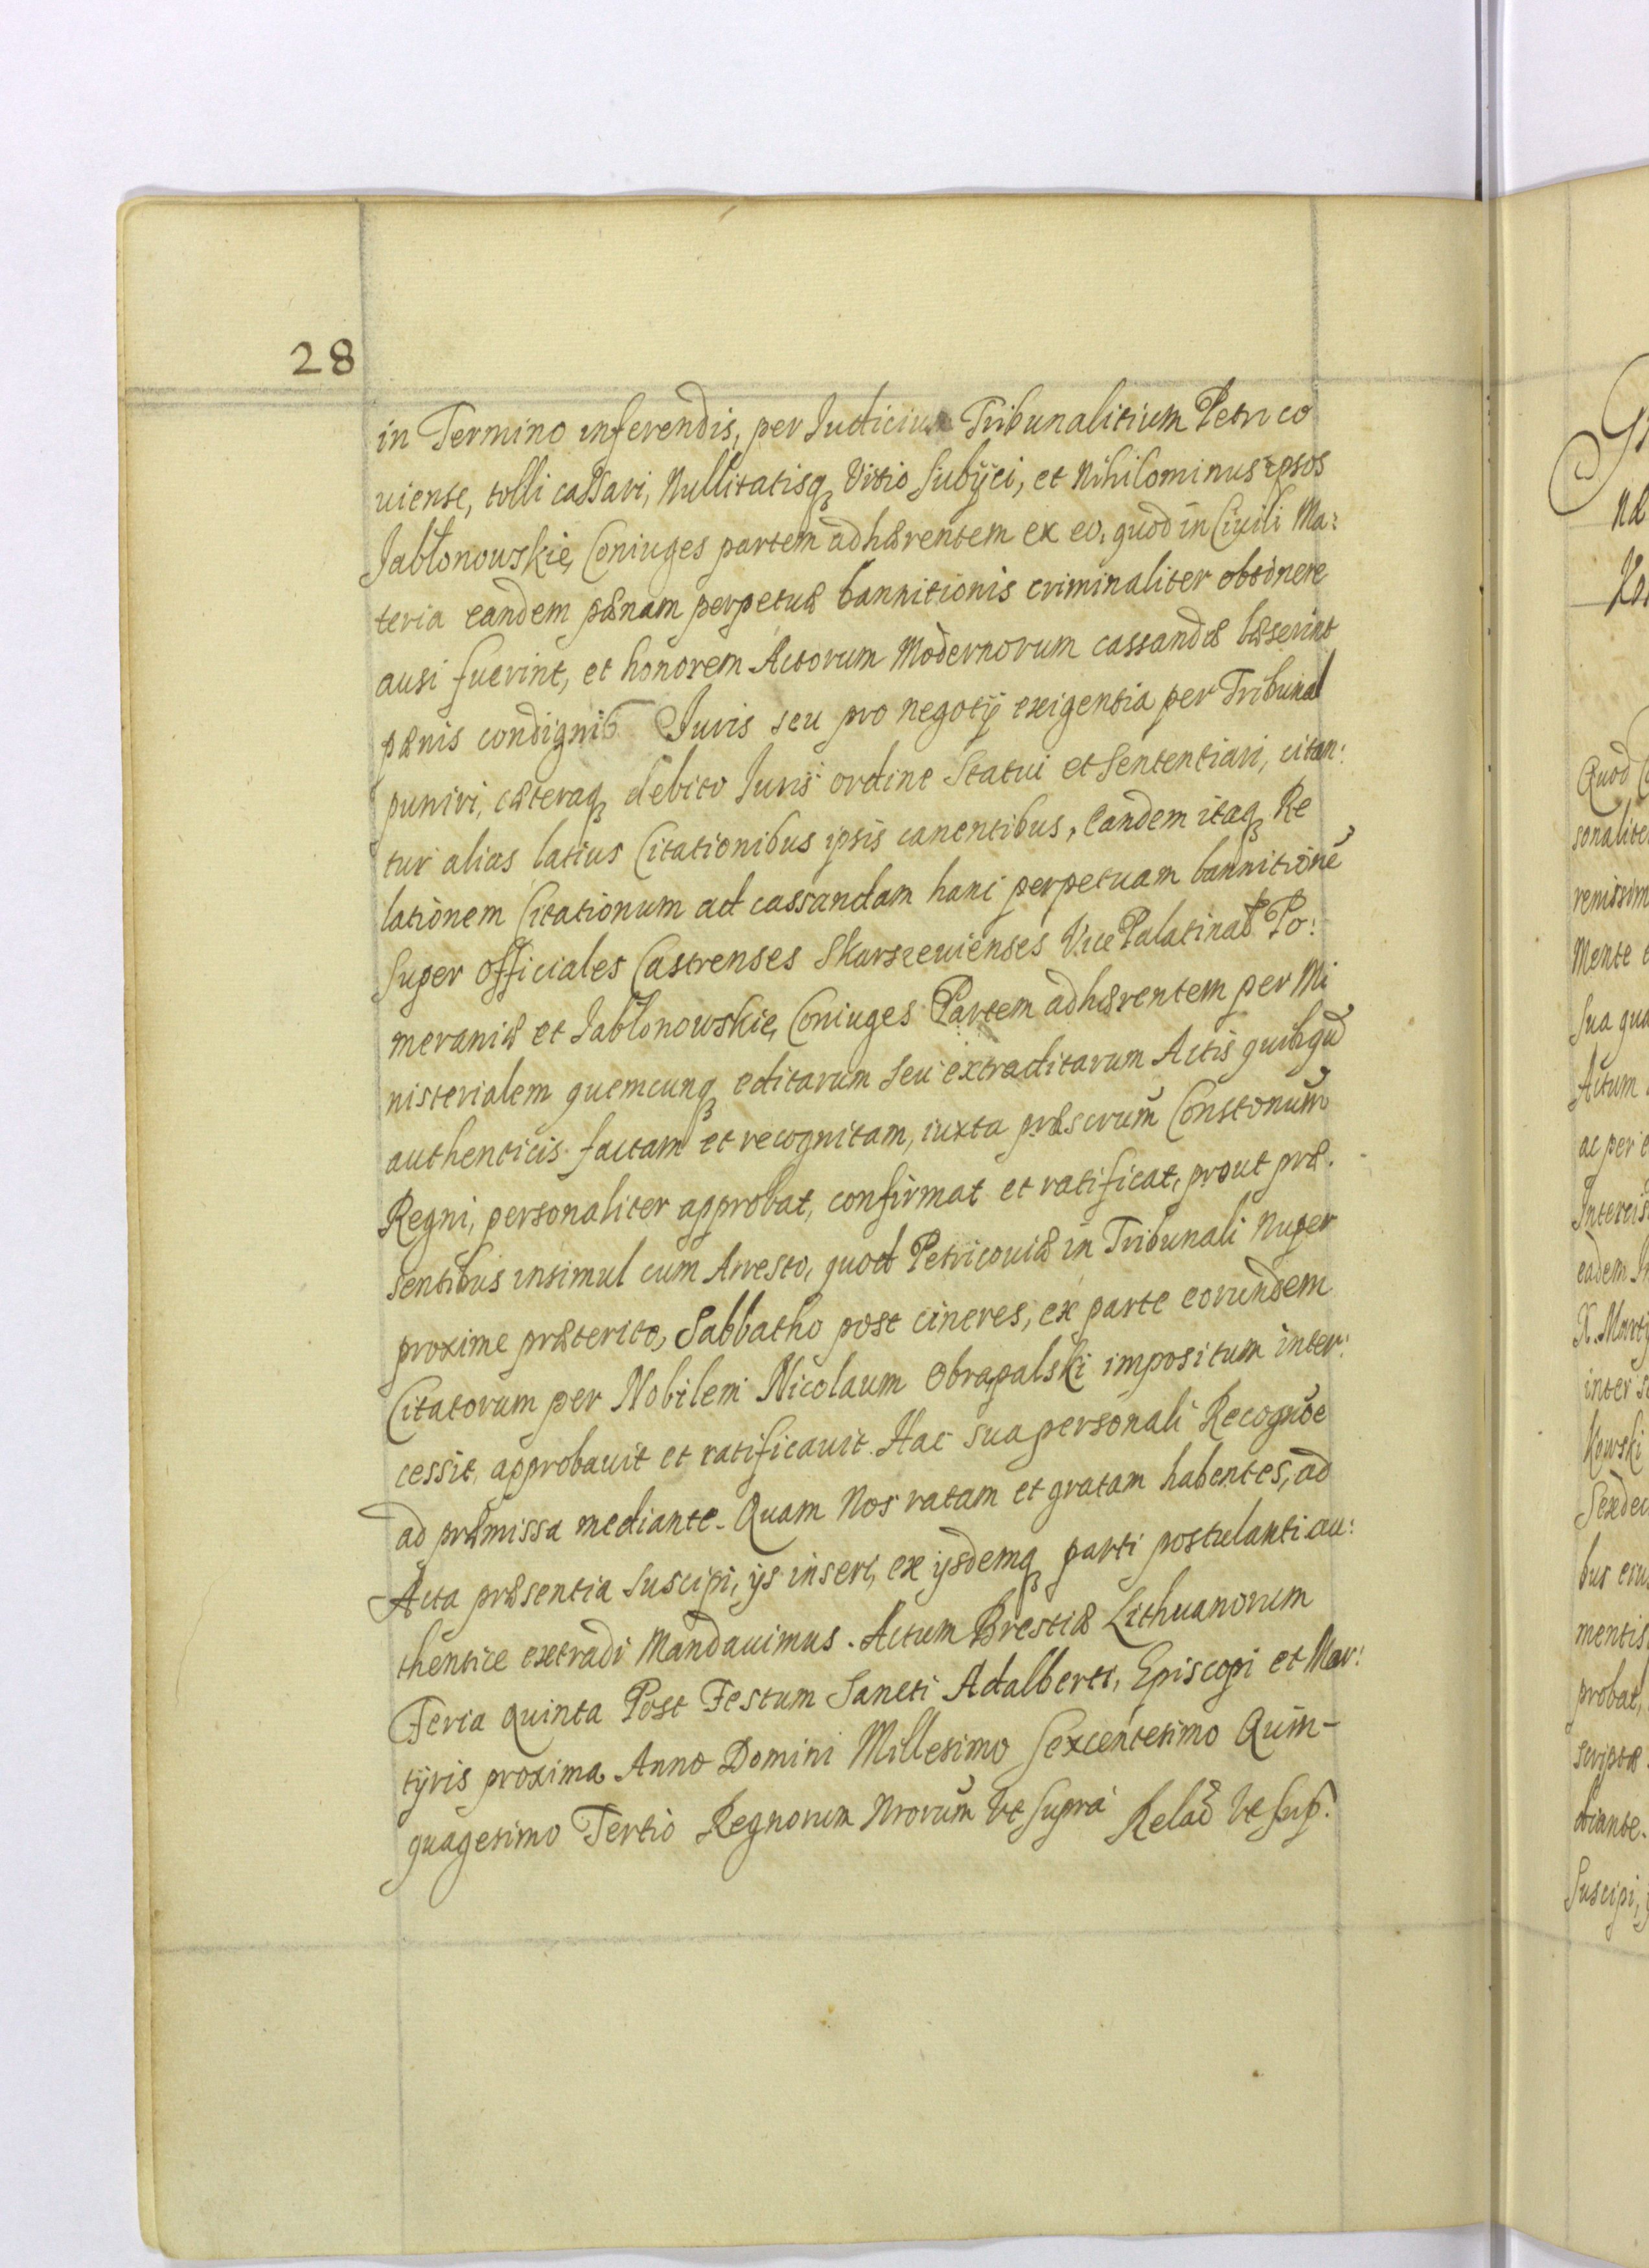 28
in Termino inferendis, per Iudicium Tribunalitium Petrico
uiense, tolli cassari, Nullitatisq3 Vitio subijci, et Nihilominus ipsos
Jabłonowskie Coniuges partem adhærentem ex eo, quod in Ciuili Ma:
teria eandem pænam perpetuæ bannitionis criminaliter obtinere
ausi fuerint, et honorem Actorum Modernorum cassandæ læserint
pænis condignis Iuris seu pro negotij exigentia per Tribunal
puniri, cæteraq3 debito Iuris ordine Statui et Sententiari, citan:
tur alias latius Citationibus ipsis canentibus, Eandem itaq3 Re
lationem Citationum ad cassandam hanc perpetuam bannitionē
super Officiales Castrenses Skarszeuienses Vice Palatinatꝰ Po:
meraniæ et Jabłonowskie Coniuges Partem adhærentem per Mi
nisterialem quemcunq3 editarum seu extraditarum Actis quibꝰqꝫ
authenticis factam et recognitam, iuxta præscrūm Constonūm
Regni, personaliter approbat, confirmat et ratificat, prout præ.
sentibus insimul cum Arresto, quod Petricouiæ in Tribunali Nuper
proxime præterito, Sabbatho post cineres, ex parte eorundem
Citatorum per Nobilem Nicolaum Obrąpalski impositum inter:
cessit, approbauit et ratificauit. Hac sua personali Recognōe
ad præmissa mediante. Quam Nos ratam et gratam habentes, ad
Acta præsentia suscipi, ijs inseri, ex ijsdemq3 parti postulanti au:
thentice extradi Mandauimus. Actum Brestiæ Lithuanorum
Feria Quinta Post Festum Sancti Adalberti, Episcopi et Mar:
tyris proxima Anno Domini Millesimo Sexcentesimo Quin-
quagesimo Tertio Regnorum Nrorūm Vt supra Relaō Vt sup:
Quod
sonaliter
renissim
Mente
Sua qua
Actum
ac per
Intercis
eadem
inter
Kowski
Sexdeci
bus
mentis
probat,
scriptæ
diante.
Suscipi,